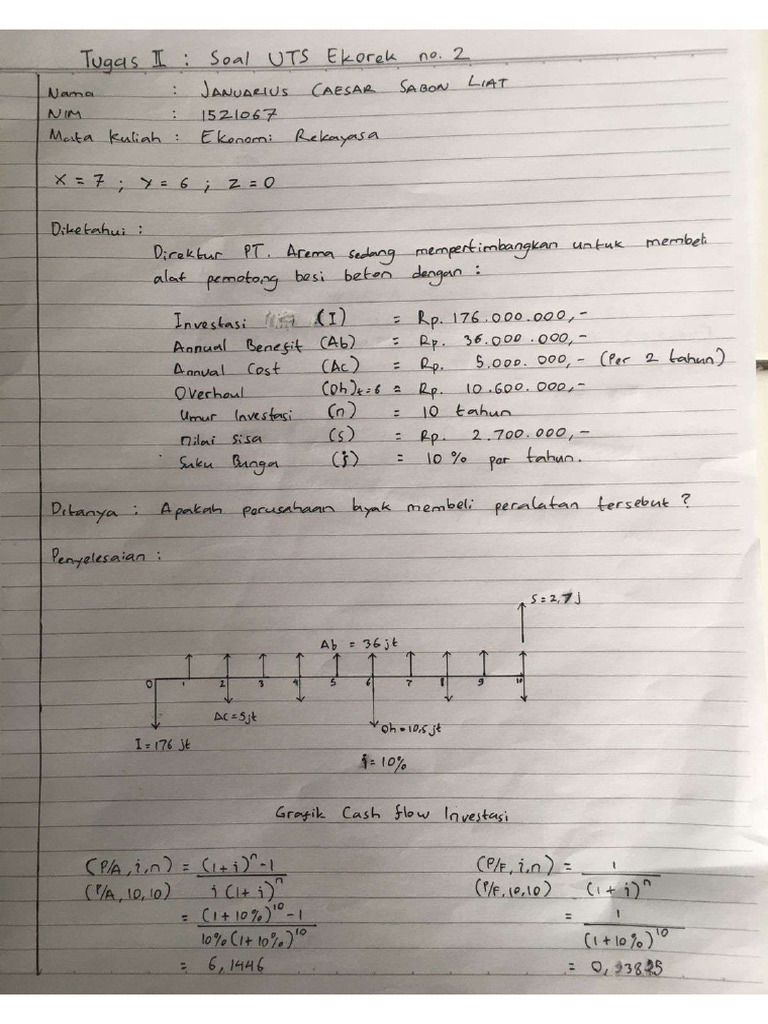 Tugas II : Soal UTS Ekorek no. 2
Nama : JANUARIUS CAESAR SABON LIAT
NIM : 1521067
Mata Kuliah : Ekonomi Rekayasa
X = 7 ; Y = 6 ; Z = 0
Diketahui :
Direktur PT. Arema sedang mempertimbangkan untuk membeli
alat pemotong besi beton dengan :
Investasi (I) = Rp. 176.000.000,-
Annual Benefit (Ab) = Rp. 36.000.000,-
Annual Cost (Ac) = Rp. 5.000.000,- (Per 2 tahun)
Overhoul (Oh)t=6 = Rp. 10.600.000,-
Umur Investasi (n) = 10 tahun
Nilai Sisa (s) = Rp. 2.700.000,-
Suku Bunga (j) = 10 % par tahun.
Ditanya : Apakah perusahaan layak membeli peralatan tersebut ?
Penyelesaian :
S = 2,7 j
Ab = 36 jt
0 1 2 3 4 5 6 7 8 9 10
AC = 5jt
Oh = 10,5 jt
I = 176 jt
i = 10%
Grafik Cash flow Investasi
(P/A, i, n) = (1+i)^n - 1 / i (1+i)^n
(P/A, 10, 10)
= (1+10%)^10 - 1 / 10% (1+10%)^10
= 6,1446
(P/F, i, n) = 1 / (1+i)^n
(P/F, 10, 10)
= 1 / (1+10%)^10